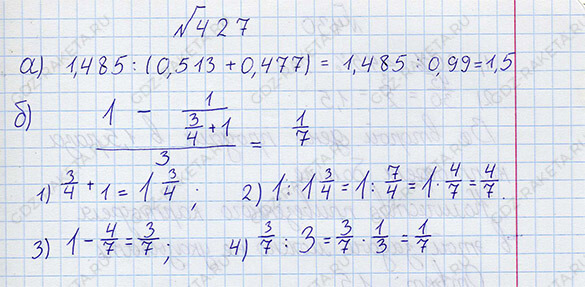 №427
а) 1,485 : (0,513 + 0,477) = 1,485 : 0,99 = 1,5
б) (1 - 1/(3/4 + 1))/3 = 1/7
1) 3/4 + 1 = 1 3/4; 2) 1 : 1 3/4 = 1 : 7/4 = 1 · 4/7 = 4/7.
3) 1 - 4/7 = 3/7; 4) 3/7 : 3 = 3/7 · 1/3 = 1/7
GDZ-RAKETA.RU